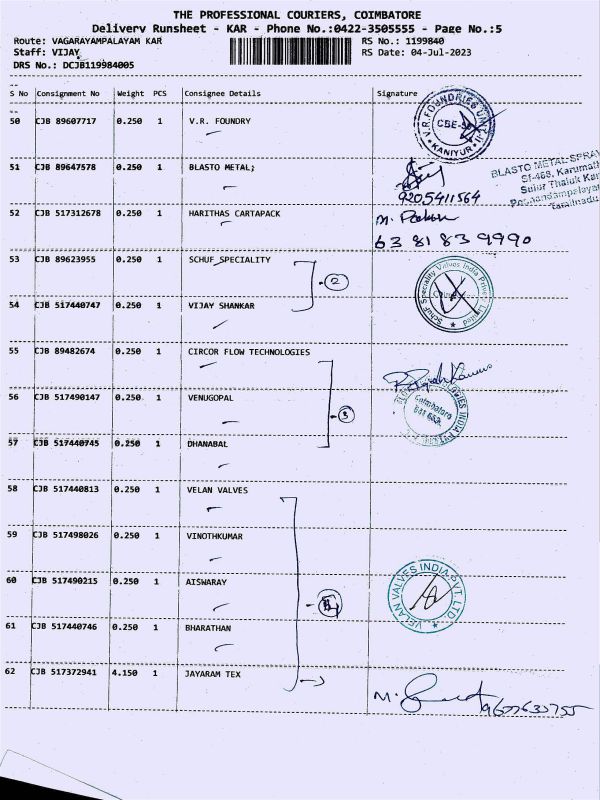 THE PROFESSIONAL COURIERS, COIMBATORE
Delivery Runsheet - KAR - Phone No.:0422-3505555 - Page No.:5
Route: VAGARAYAMPALAYAM KAR RS No.: 1199840
Staff: VIJAY RS Date: 04-Jul-2023
DRS No.: DCJB119984005
S No Consignment No Weight PCS Consignee Details Signature
50 CJB 89607717 0.250 1 V.R. FOUNDRY
V.R.FOUNDRIES UNIT-II
CBE-
KANIYUR
51 CJB 89647578 0.250 1 BLASTO METAL;
9205411564
BLASTO METAL-SPRAY
Sf-468, Karumath
Sulur Thaluk
Tamilnadu
52 CJB 517312678 0.250 1 HARITHAS CARTAPACK
6381839990
53 CJB 89623955 0.250 1 SCHUF SPECIALITY
2
Schuf Speciality Valves India Private Limited
54 CJB 517440747 0.250 1 VIJAY SHANKAR
55 CJB 89482674 0.250 1 CIRCOR FLOW TECHNOLOGIES
56 CJB 517490147 0.250 1 VENUGOPAL
3
Coimbatore
57 CJB 517440745 0.250 1 DHANABAL
58 CJB 517440813 0.250 1 VELAN VALVES
59 CJB 517498026 0.250 1 VINOTHKUMAR
60 CJB 517490215 0.250 1 AISWARAY
VELAN VALVES INDIA PVT. LTD.
61 CJB 517440746 0.250 1 BHARATHAN
62 CJB 517372941 4.150 1 JAYARAM TEX